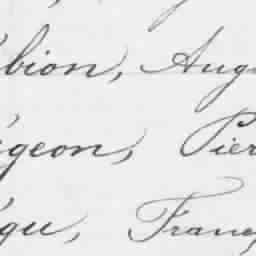 bion, Aug
geon, Pier
gu, Franç